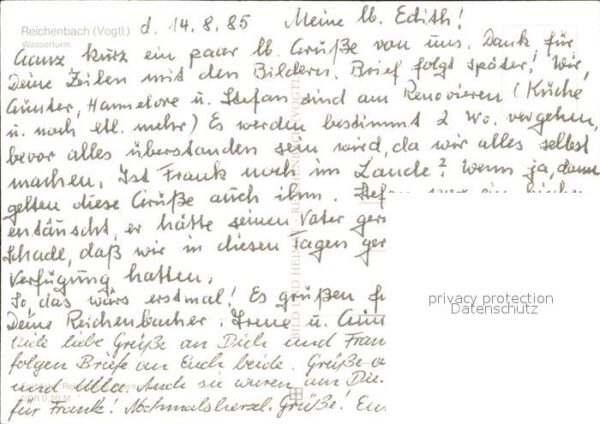 Reichenbach (Vogtl.)
Wasserturm
d. 14.8.85 Meine lb. Edith!
Ganz kurz ein paar lb. Grüße von uns. Dank für
Deine Zeilen mit den Bildern. Brief folgt später! Wir,
Günter, Hannelore u. Stefan sind am Renovieren (Küche
u. noch etl. mehr) Es werden bestimmt 2 Wo. vergehen,
bevor alles überstanden sein wird, da wir alles selbst
machen. Ist Frank noch im Lande? Wenn ja, dann
gelten diese Grüße auch ihm. Stefan war ein bischen
entäuscht, er hätte seinen Vater ger
Schade, daß wir in diesen Tagen ger
Verfügung hatten.
So, das wärs erstmal! Es grüßen
Deine Reichenbacher. Irene u. Gün
Viele liebe Grüße an Dich und Fran
folgen Briefe an Euch beide. Grüße
und Ulla. Auch sie waren um Die
für Frank! Nochmals herzl. Grüße! Eu
BILD UND HEIMAT REICHENBACH (VOGTL)
privacy protection
Datenschutz